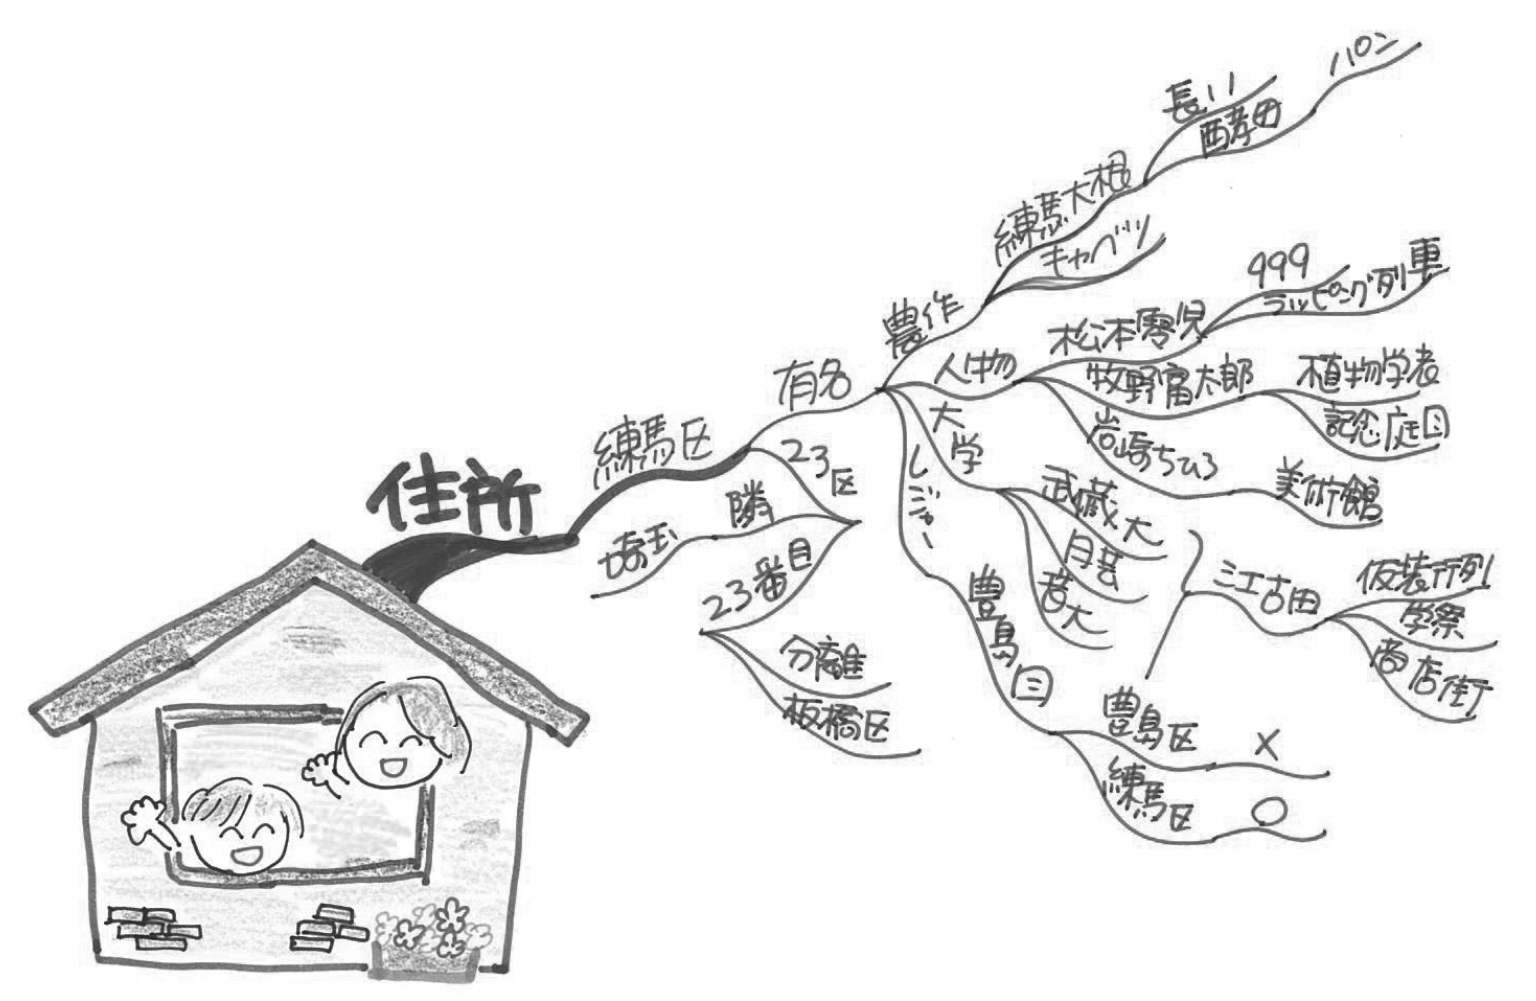 住所
練馬区
有名
農作
練馬大根
長い
酵母
パン
キャベツ
人物
松本零児
999
ラッピング列車
牧野富太郎
植物学者
記念庭園
岩崎ちひろ
美術館
大学
武蔵大
日芸
音大
江古田
仮装行列
学祭
商店街
レジャー
豊島園
豊島区
×
練馬区
○
23区
隣
埼玉
23番目
分離
板橋区